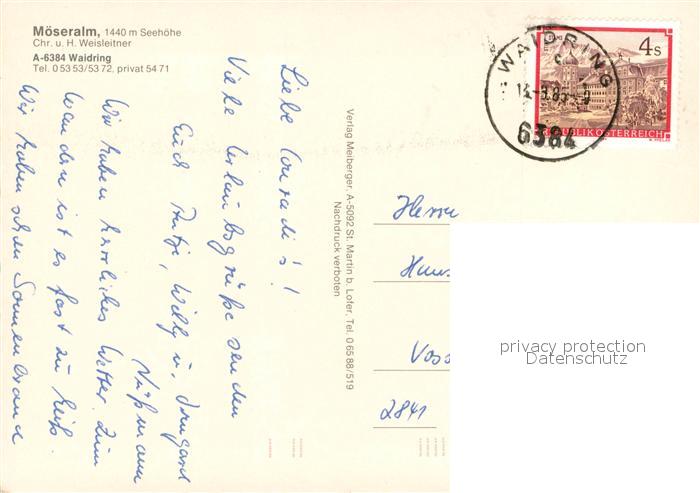 Möseralm, 1440 m Seehöhe
Chr. u. H. Weisleitner
A-6384 Waidring
Tel. 0 53 53/53 72, privat 54 71
Liebe Conradi's!
Viele Urlaubsgrüße senden
Euch Putzi, Willy u. Irmgard
Nüßmann
Wir haben herrliches Wetter. Zum
Wandern ist es fast zu heiß.
Wir haben schon Sonnenbrand
Verlag Meiberger, A-5092 St. Martin b. Lofer, Tel. 0 65 88/519
Nachdruck verboten
WAIDRING
6384
4 S
REPUBLIK ÖSTERREICH
Herrn
Hans
Voss
2841
privacy protection
Datenschutz